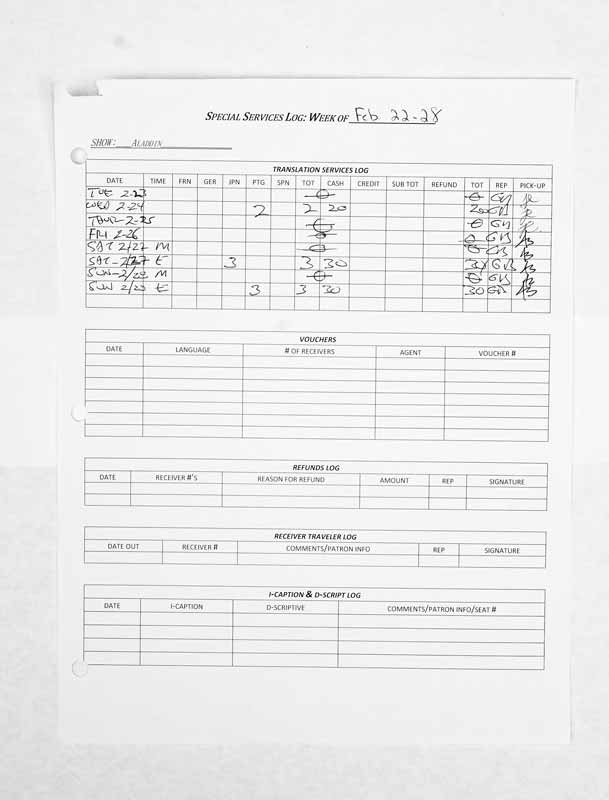 SPECIAL SERVICES LOG: WEEK OF Feb 22-28
SHOW: ALADDIN
TRANSLATION SERVICES LOG
DATE TIME FRN GER JPN PTG SPN TOT CASH CREDIT SUB TOT REFUND TOT REP PICK-UP
TUE 2-23 0 0 GB
WED 2-24 2 2 20 20 GB
THUR 2-25 0 0 GB
FRI 2-26 0 0 GB
SAT 2/27 M 0 0 GB
SAT-2/27 E 3 3 30 30 GB
SUN-2/28 M 0 0 GB
SUN 2/28 E 3 3 30 30 GB
VOUCHERS
DATE LANGUAGE # OF RECEIVERS AGENT VOUCHER #
REFUNDS LOG
DATE RECEIVER #'S REASON FOR REFUND AMOUNT REP SIGNATURE
RECEIVER TRAVELER LOG
DATE OUT RECEIVER # COMMENTS/PATRON INFO REP SIGNATURE
I-CAPTION & D-SCRIPT LOG
DATE I-CAPTION D-SCRIPTIVE COMMENTS/PATRON INFO/SEAT #